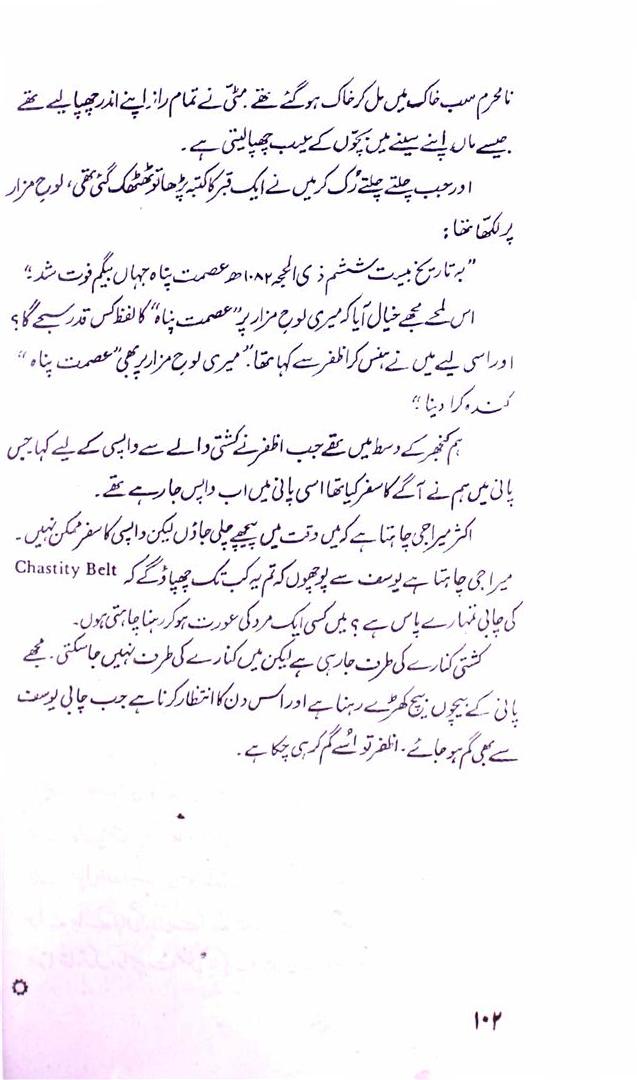 نامحرم سب خاک میں مل کر خاک ہو گئے تھے مٹی نے تمام راز اپنے اندر چھپا لیے تھے
جیسے ماں اپنے سینے میں بچّوں کے عیب چھپا لیتی ہے۔
اور جب چلتے چلتے رُک کر میں نے ایک قبر کا کتبہ پڑھا تو ٹھٹھک گئی تھی، لوحِ مزار
پر لکھّا تھا:
"بہ تاریخ بیست ششم ذی الحجہ ۱۰۸۲ھ عصمت پناہ جہاں بیگم فوت شد"
اس لمحے مجھے خیال آیا کہ میری لوحِ مزار پر "عصمت پناہ" کا لفظ کس قدر سجے گا؟
اور اسی لیے میں نے ہنس کر اظفر سے کہا تھا۔ "میری لوحِ مزار پر بھی "عصمت پناہ"
کندہ کرا دینا"
ہم کنجھر کے وسط میں تھے جب اظفر نے کشتی والے سے واپسی کے لیے کہا جس
پانی میں ہم نے آگے کا سفر کیا تھا اسی پانی میں اب واپس جا رہے تھے۔
اکثر میرا جی چاہتا ہے کہ میں وقت میں پیچھے چلی جاؤں لیکن واپسی کا سفر ممکن نہیں۔
میرا جی چاہتا ہے یوسف سے پوچھوں کہ تم یہ کب تک چھپاؤ گے کہ Chastity Belt
کی چابی تمہارے پاس ہے؟ میں کسی ایک مرد کی عورت ہو کر رہنا چاہتی ہوں۔
کشتی کنارے کی طرف جا رہی ہے لیکن میں کنارے کی طرف نہیں جا سکتی۔ مجھے
پانی کے بیچوں بیچ کھڑے رہنا ہے اور اس دن کا انتظار کرنا ہے جب چابی یوسف
سے بھی گم ہو جائے۔ اظفر تو اُسے گم کر ہی چکا ہے۔
۱۰۲